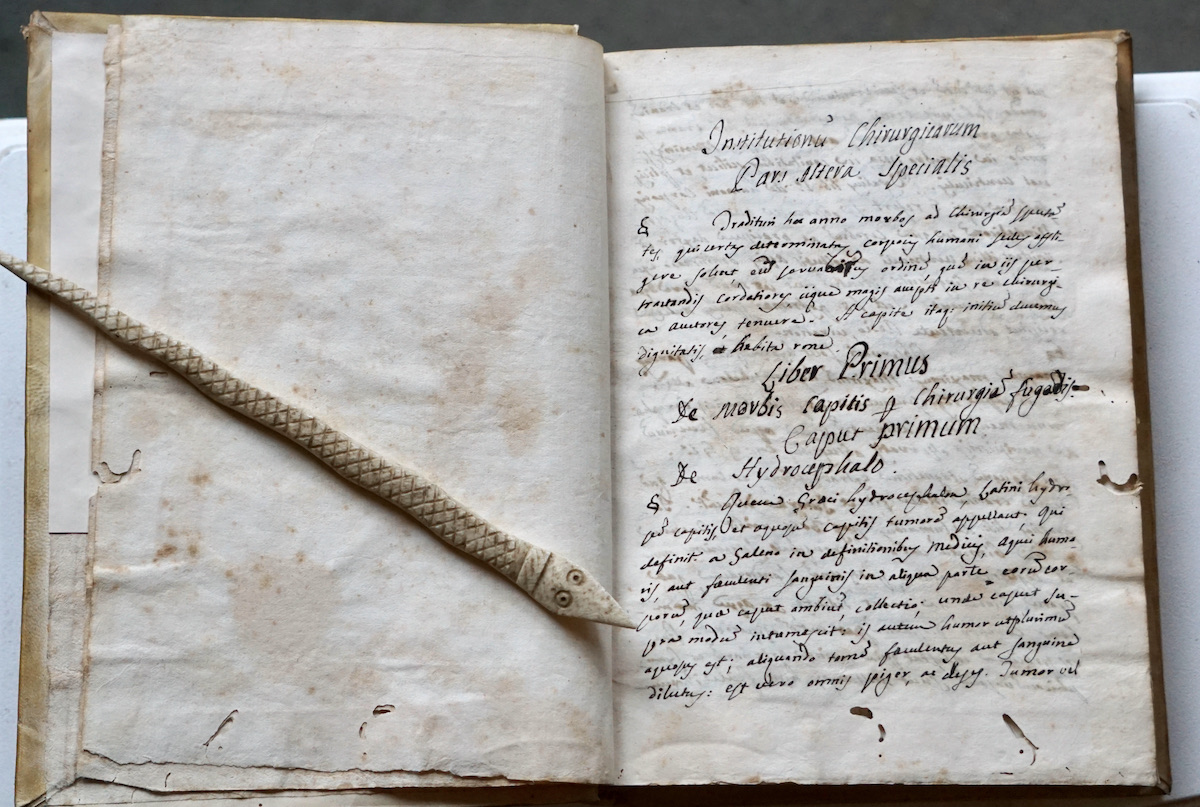 Institutionū Chirurgicarum
Pars altera Specialis
§ Tradituri hoc anno morbos ad Chirurgiā spectā
tes, qui certas determinatas corporis humani sedes affli-
gere solent eū servabimus ordinē quē in iis per-
tractandis Cordatiores iiqᵫ magis auspti in re Chirurgi-
ca auctores tenuere. A capite itaq: initiū ducemus
dignitatis, habita ronē
Liber Primus
De Morbis Capitis Chirurgiā
Caput primum
De Hydrocephalo.
§ Quem Graeci hydrocephalon, Latini hydro
pē capitis, et aquosū capitis tumorē appellant. Qui
definit. a Galeno in definitionibus Medicis, Aquei humo-
ris, aut faeculenti sanguinis in aliqua parte eorū cor-
porū, quae caput ambiūt, collectio; unde caput su-
pra modū intumescit: is autem humor utplurimū
aquosus est; aliquando tamē faeculentus aut sanguine
dilutus: est vero omnis piger, ac deses. Tumor vel